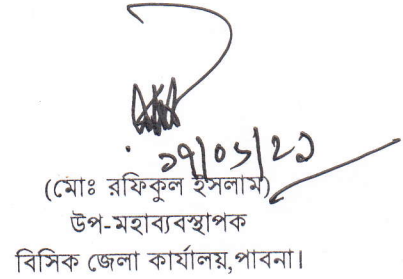 ২৭/০১/২১
(মোঃ রফিকুল ইসলাম)
উপ-মহাব্যবস্থাপক
বিসিক জেলা কার্যালয়,পাবনা।